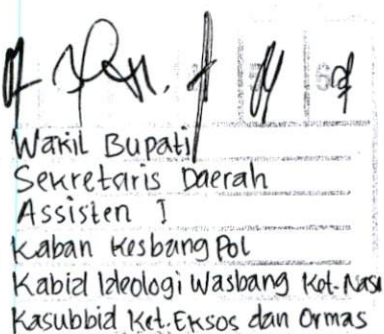 Wakil Bupati
Sekretaris Daerah
Assisten I
Kaban Kesbang Pol
Kabid Ideologi Wasbang Ket. Nas
Kasubbid Ket. Eksos dan Ormas